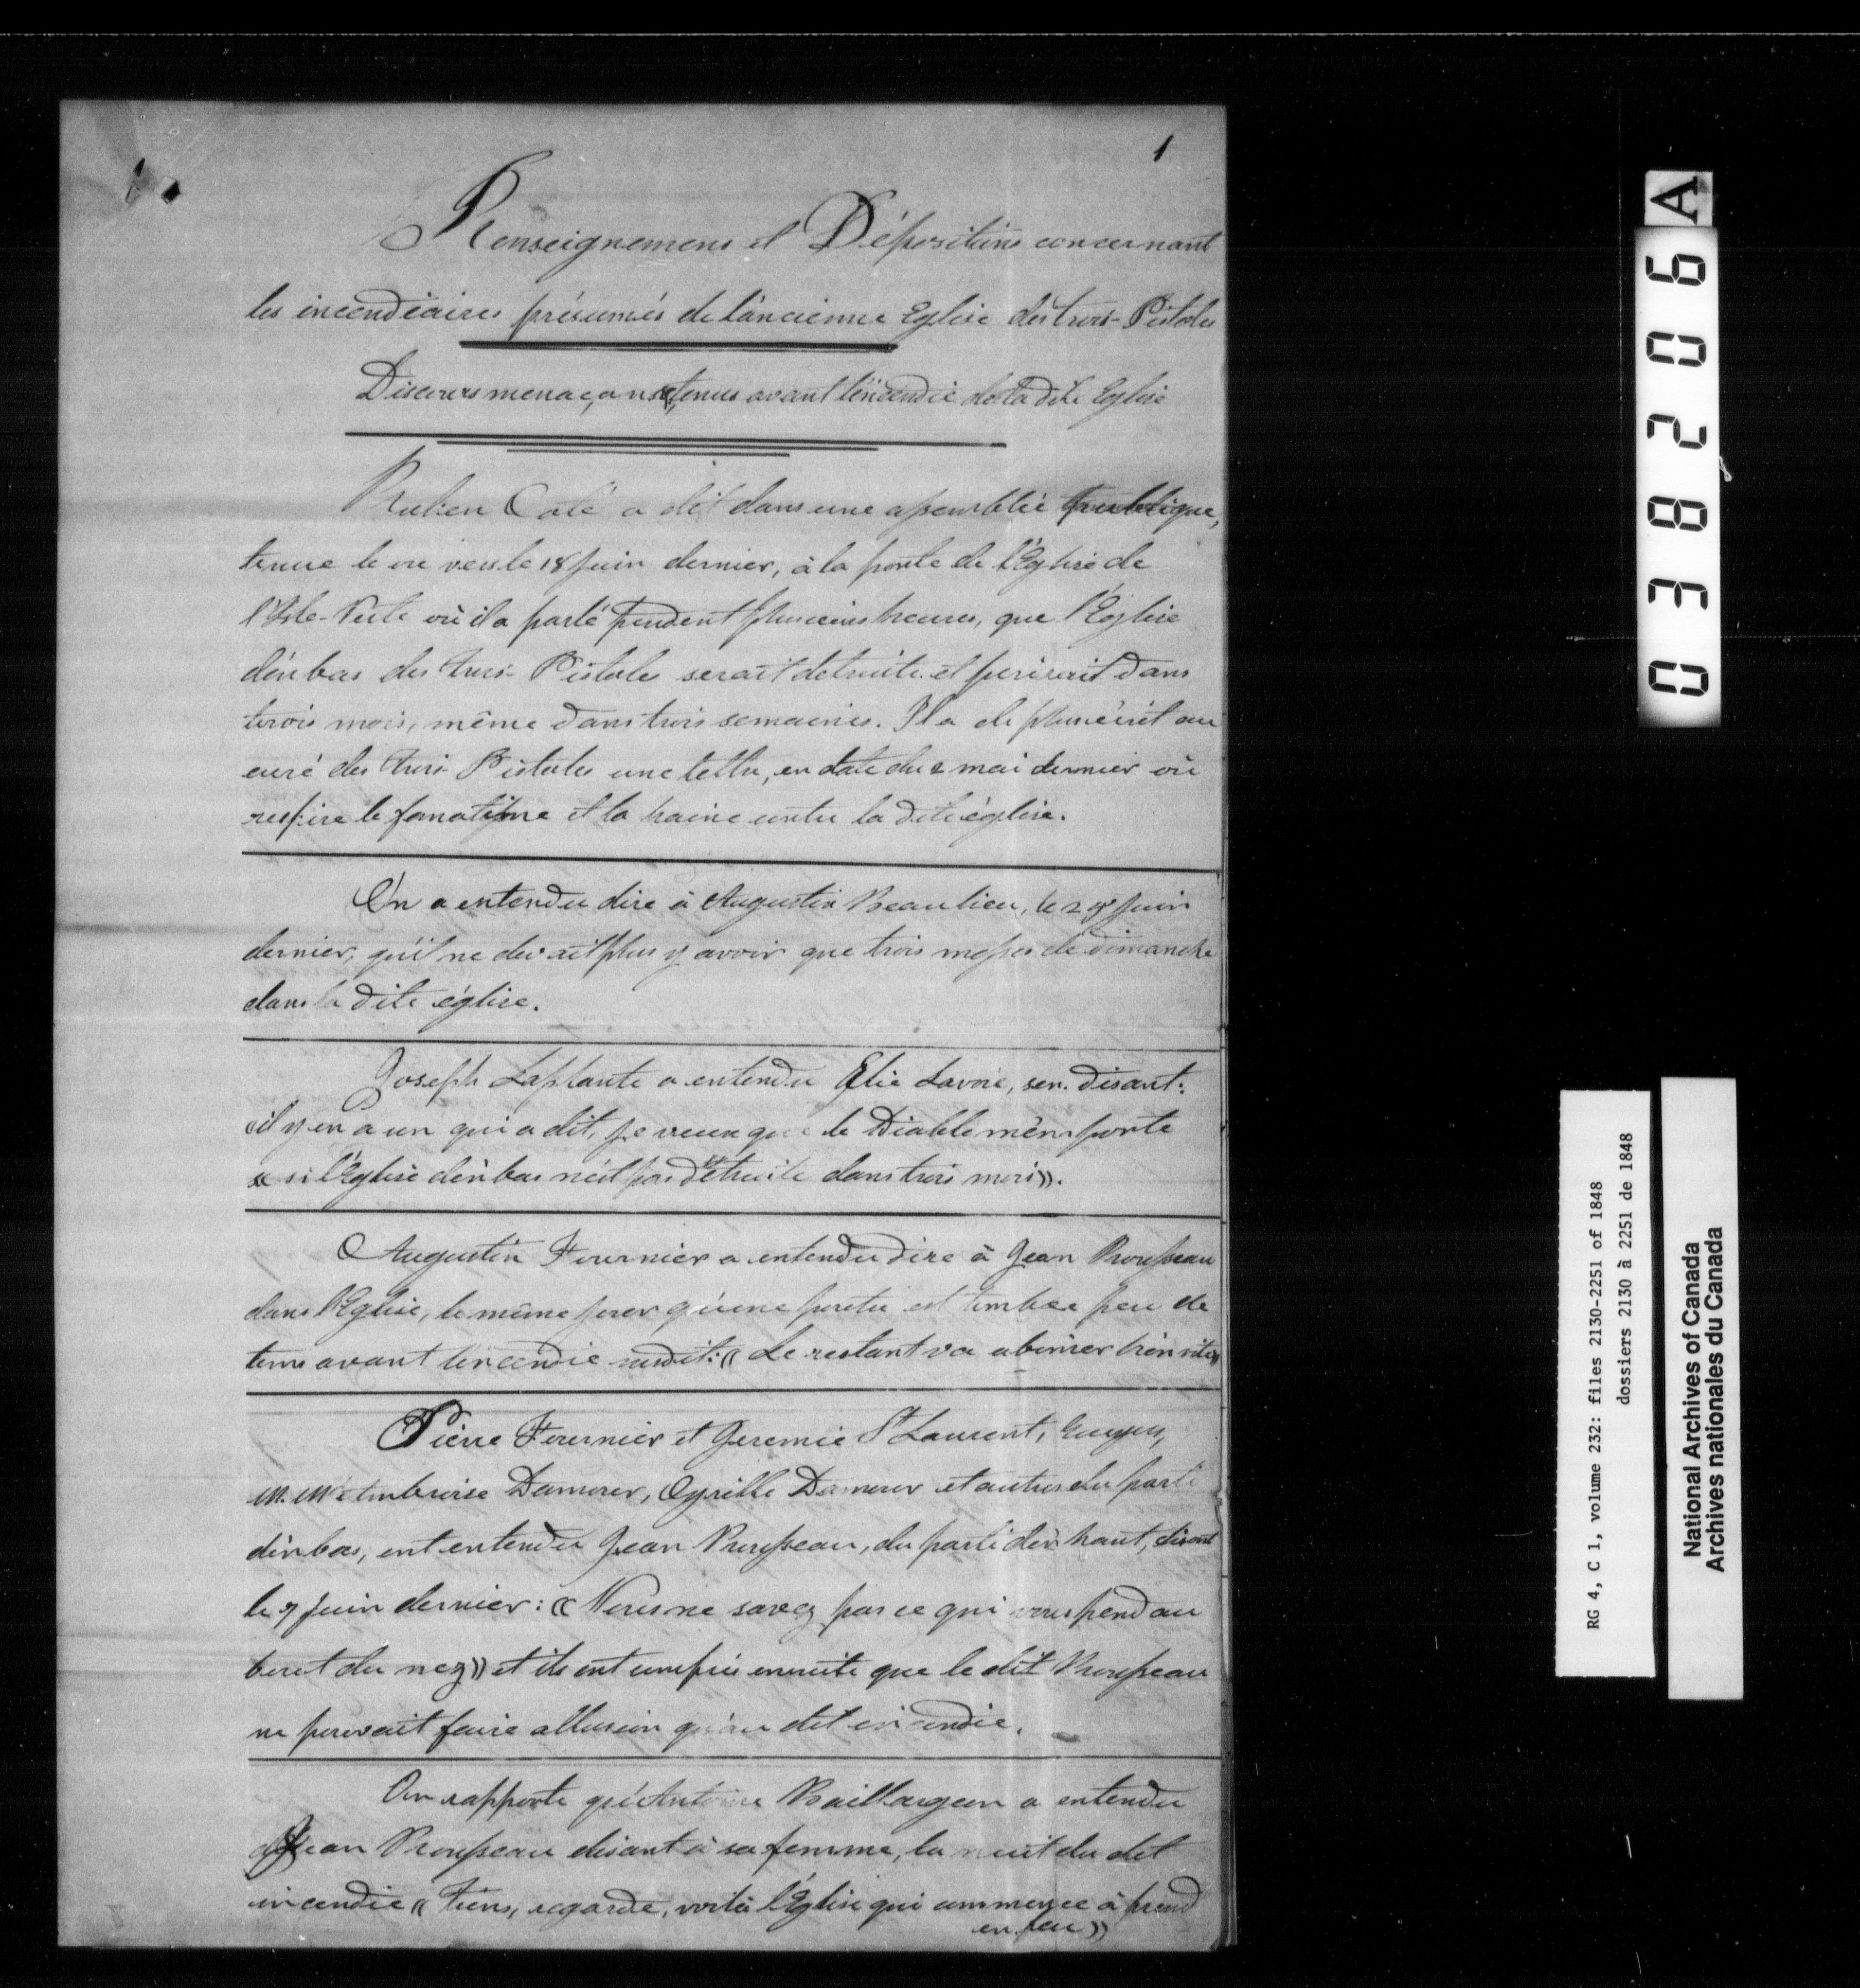 1
Renseignemens et Dépositions concernant
les incendiaires présumés de l'ancienne Eglise des trois-Pistoles
Discours menaçans tenus avant l'incendie de la dite Eglise
Ruben Coté a dit dans une assemblée publique,
tenue le ou vers le 18 Juin dernier, à la porte de l'Eglise de
l'Isle-Verte où il a parlé pendant plusieurs heures, que l'Eglise
d'en bas des Trois-Pistoles serait detruite et perirait dans
trois mois, même dans trois semaines. Il a de plus écrit au
curé des Trois-Pistoles une lettre, en date du 2 mai dernier où
respire le fanatisme et la haine contre la dite église.
On a entendu dire à Augustin Beaulieu, le Juin
dernier, qu'il ne devait plus y avoir que trois messes de dimanche
dans la dite église.
Joseph Laplante a entendu Elie Lavoie, sen. disant:
« il y en a un qui a dit, je veux que le Diable m'emporte
« si l'Eglise d'en bas n'est pas détruite dans trois mois».
Augustin Fournier a entendu dire à Jean Rousseau
dans l'Eglise, le même jour qu'une poutre est tombée peu de
tems avant l'incendie susdit: « Le restant va abimer bien vite»
Pierre Fournier et Jeremie St Laurent, Ecuyers,
M.M. Ambroise Damour, Cyrille Damour et autres du parti
d'en bas, ont entendu Jean Rousseau, du parti d'en haut, disant
le 7 Juin dernier: « Vous ne savez pas ce qui vous pend au
bout du nez» et ils ont compris ensuite que le dit Rousseau
ne pouvait faire allusion qu'au dit incendie.
On rapporte qu'Antoine Baillargeon a entendu
Jean Rousseau disant à sa femme, la nuit du dit
incendie « Tiens, regarde, voilà l'Eglise qui commence à prend
en feu»
038206 A
RG 4, C 1, volume 232: files 2130-2251 of 1848
dossiers 2130 à 2251 de 1848
National Archives of Canada
Archives nationales du Canada